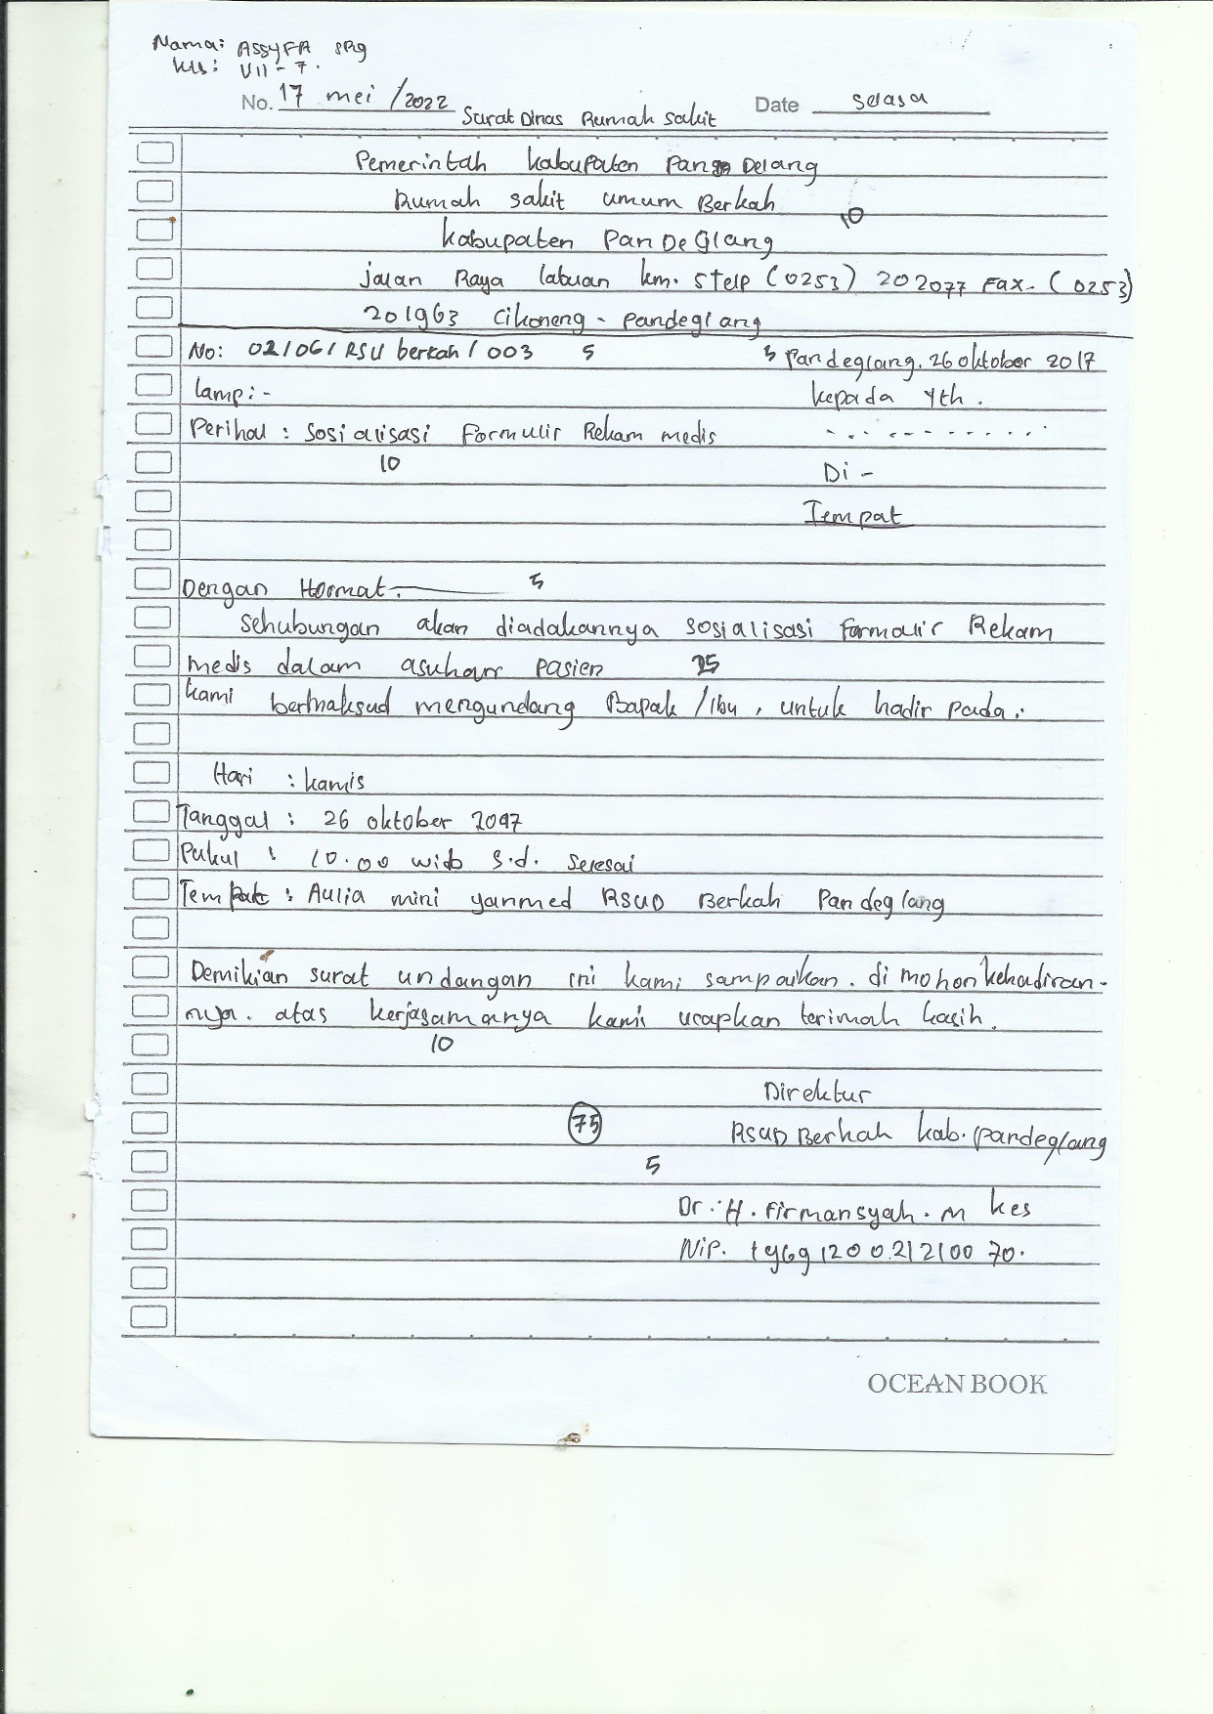 Nama: ASSYFA SRG
kls: VII-7.
No. 17 mei /2022 Date selasa
Surat Dinas Rumah sakit
Pemerintah kabupaten Pan Delang
Rumah sakit umum Berkah
10
kabupaten PanDeGlang
jalan Raya labuan km. 5telp (0253) 202077 Fax- (0253)
201963 Cikoneng - Pandeglang
No: 02/06/RSU berkah/003 5 5 Pandeglang. 26 oktober 2017
lamp: - kepada yth.
Perihal: Sosialisasi Formulir Rekam medis ............
10 Di -
Tempat
Dengan Hormat. 5
Sehubungan akan diadakannya sosialisasi Formulir Rekam
medis dalam asuhan pasien 25
kami bermaksud mengundang Bapak/Ibu, untuk hadir pada:
Hari : kamis
Tanggal : 26 oktober 2017
Pukul : 10.00 wib s.d. selesai
Tempat : Aulia mini yanmed RSUD Berkah Pandeglang
Demikian surat undangan ini kami sampaikan. di mohon kehadiran-
nya. atas kerjasamanya kami ucapkan terimah kasih.
10
Direktur
75 RSUD Berkah kab. pandeglang
5
Dr. H. Firmansyah. M kes
NiP. 19691200212100 70.
OCEAN BOOK